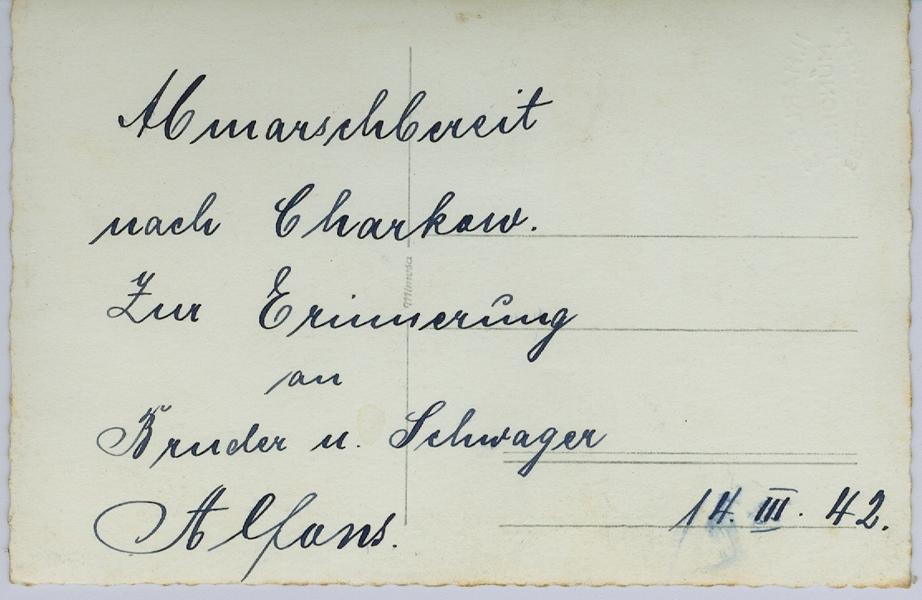 Abmarschbereit
nach Charkow.
Zur Erinnerung
an
Bruder u. Schwager
Alfons.
14. III. 42.
Mimosa